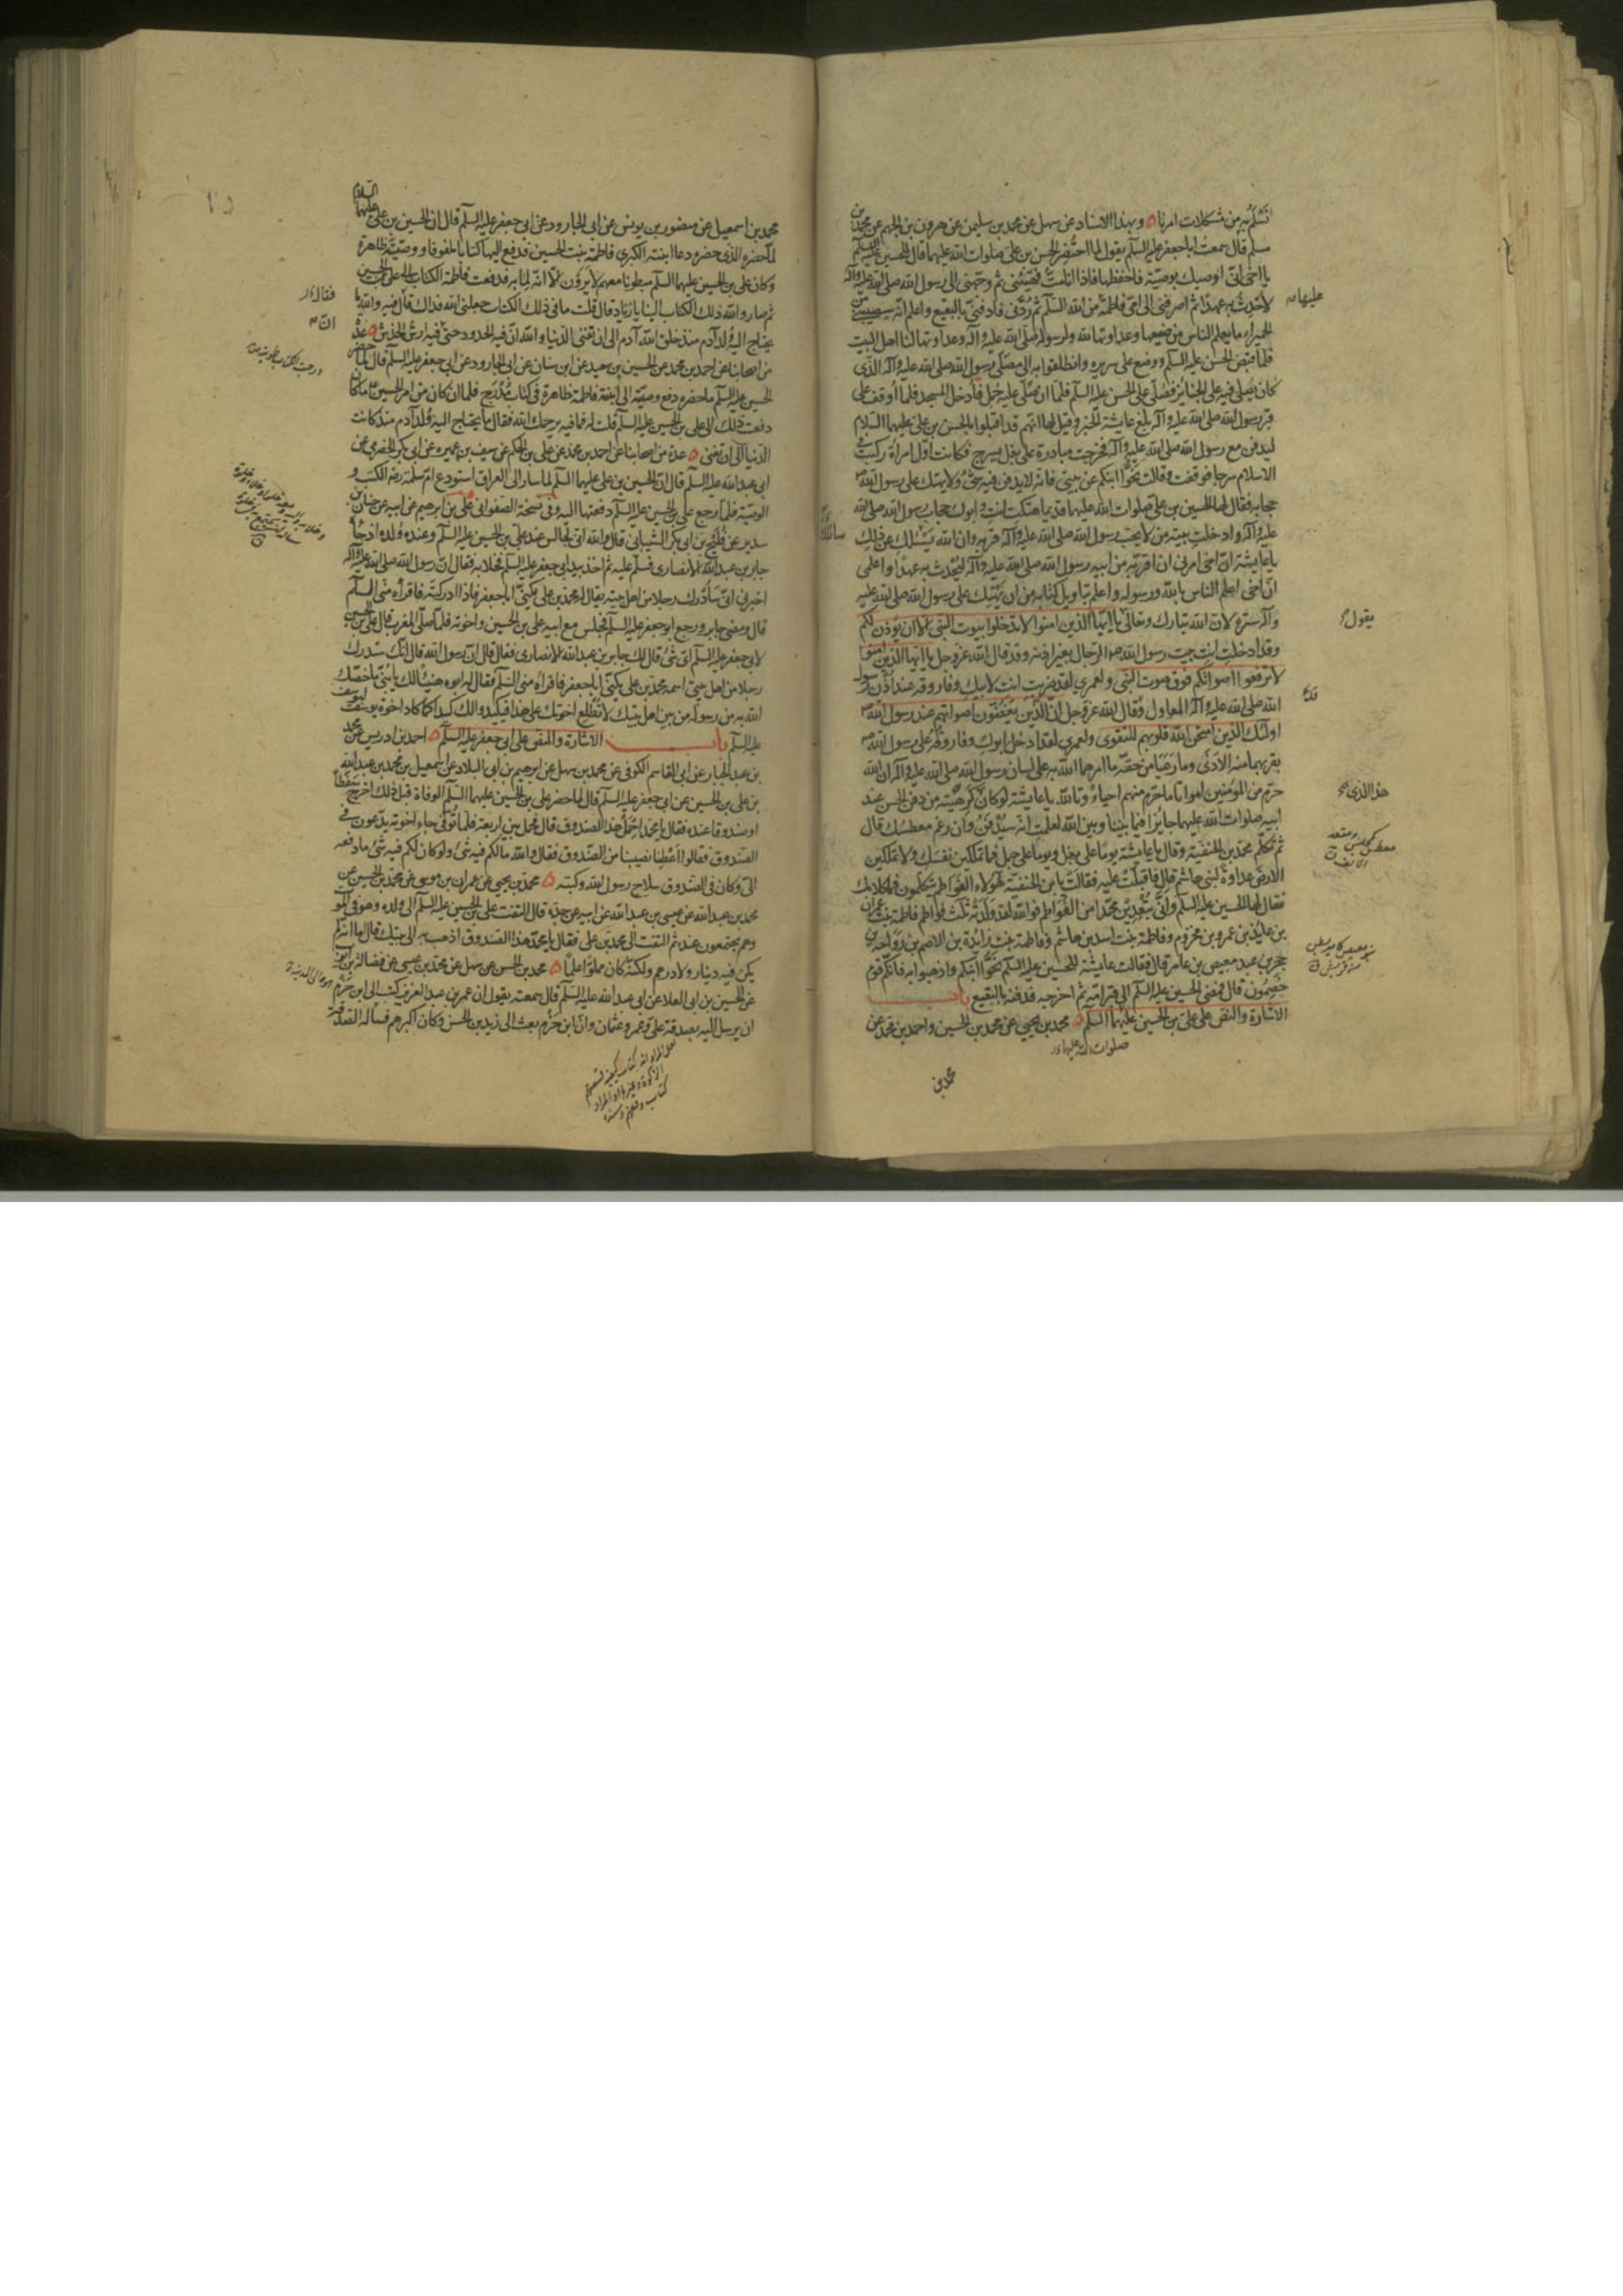 نسلم به من مشكلات امرنا وبهذا الاسناد عن سهل عن محمد بن سليمن عن هرون بن الجهم عن محمد بن
مسلم قال سمعت اباجعفر عليه السلم يقول لما احتضر الحسن بن علي صلوات الله عليهما قال للحسين عليه السلم
يا اخي اني اوصيك بوصية فاحفظها فاذا انا مت فهيئني ثم وجهني الى رسول الله صلى الله عليه وآله
لاحدث به عهدا ثم اصرفني الى امي فاطمة ثم ردني فادفني بالبقيع واعلم انه سيصيبني من
الحميراء ما يعلم الناس من صنيعها وعداوتها لله ولرسوله صلى الله عليه وآله وعداوتها لنا اهل البيت
فلما قبض الحسن عليه السلم ووضع على سريره وانطلقوا به الى مصلى رسول الله صلى الله عليه وآله الذي
كان يصلى فيه على الجنائز فصلى على الحسن عليه السلم فلما ان صلى عليه حمل فادخل المسجد فلما اوقف على
قبر رسول الله صلى الله عليه وآله بلغ عايشة الخبر وقيل لها انهم قد اقبلوا بالحسن بن علي عليهما السلام
ليدفن مع رسول الله صلى الله عليه وآله فخرجت مبادرة على بغل بسرج فكانت اول امرأة ركبت في
الاسلام سرجا فوقفت وقالت نحوا ابنكم عن بيتي فانه لا يدفن فيه شئ ولا يهتك على رسول الله
حجابه فقال لها الحسين بن علي صلوات الله عليهما قديما هتكت انت وابوك حجاب رسول الله صلى الله
عليه وآله وادخلت بيته من لا يحب رسول الله صلى الله عليه وآله قربه وان الله يسئلك عن ذلك
يا عايشة ان اخي امرني ان اقربه من ابيه رسول الله صلى الله عليه وآله ليحدث به عهدا واعلمي
ان اخي اعلم الناس بالله ورسوله واعلم بتاويل كتابه من ان يهتك على رسول الله صلى الله عليه
وآله ستره لان الله تبارك وتعالى يا ايها الذين امنوا لا تدخلوا بيوت النبي الا ان يؤذن لكم
وقد ادخلت انت بيت رسول الله الرجال بغير اذنه وقد قال الله عز وجل يا ايها الذين امنوا
لا ترفعوا اصواتكم فوق صوت النبي ولعمري لقد ضربت انت لابيك وفاروقه عند اذن رسول
الله صلى الله عليه وآله المعاول وقال الله عز وجل ان الذين يغضون اصواتهم عند رسول الله
اولئك الذين امتحن الله قلوبهم للتقوى ولعمري لقد ادخل ابوك وفاروقه على رسول الله
بقربهما منه الاذى وما رعيا من حقه ما امرهما الله به على لسان رسول الله صلى الله عليه وآله ان الله
حرم من المؤمنين امواتا ما حرم منهم احياء وتالله يا عايشة لو كان كرهتيه من دفن الحسن عند
ابيه صلوات الله عليهما جايزا فيما بيننا وبين الله لعلمت انه سيدفن وان رغم معطسك قال
ثم تكلم محمد بن الحنفية وقال يا عايشة يوما على بغل ويوما على جمل فما تملكين نفسك ولا تملكين
الارض عداوة لبني هاشم قال فاقبلت عليه فقالت يا ابن الحنفية هؤلاء الفواطم يتكلمون فما كلامك
فقال لها الحسين عليه السلم واني تبعدين محمدا من الفواطم فوالله لقد ولدته ثلث فواطم فاطمة بنت عمران
بن عايذ بن عمرو بن مخزوم وفاطمة بنت اسد بن هاشم وفاطمة بنت زائدة بن الاصم بن رواحة بن
حجر بن عبد معيص بن عامر قال فقالت عايشة للحسين عليه السلم نحوا ابنكم واذهبوا به فانكم قوم
خصمون قال فمضى الحسين عليه السلم الى قبر امه ثم اخرجه فدفنه بالبقيع باب
الاشارة والنص على علي بن الحسين عليهما السلم محمد بن يحيى عن محمد بن الحسين واحمد بن محمد عن
صلوات الله عليهما
محمد بن
عليهما
يقول
هذا الذي
محمد بن اسمعيل عن منصور بن يونس عن ابي الجارود عن ابي جعفر عليه السلم قال ان الحسين بن علي عليهما السلام
لما حضره الذي حضره دعا ابنته الكبرى فاطمة بنت الحسين فدفع اليها كتابا ملفوفا ووصية ظاهرة
وكان علي بن الحسين عليهما السلم مبطونا معهم لا يرون الا انه لما به فدفعت فاطمة الكتاب الى علي بن الحسين
ثم صار والله ذلك الكتاب الينا يا زياد قال قلت ما في ذلك الكتاب جعلني الله فداك قال فيه والله ما
يحتاج اليه ولد آدم منذ خلق الله آدم الى ان تفنى الدنيا والله ان فيه الحدود حتى ان فيه ارش الخدش عدة
من اصحابنا عن احمد بن محمد عن الحسين بن سعيد عن ابن سنان عن ابي الجارود عن ابي جعفر عليه السلم قال لما حضر
الحسين عليه السلم ما حضره دفع وصيته الى ابنته فاطمة ظاهرة في كتاب مدرج فلما ان كان من امر الحسين ما كان
دفعت ذلك الى علي بن الحسين عليه السلم قلت له فما فيه يرحمك الله فقال ما يحتاج اليه ولد آدم منذ كانت
الدنيا الى ان تفنى عدة من اصحابنا عن احمد بن محمد عن علي بن الحكم عن سيف بن عميرة عن ابي بكر الحضرمي عن
ابي عبد الله عليه السلم قال ان الحسين بن علي عليهما السلم لما سار الى العراق استودع ام سلمة رضه الكتب و
الوصية فلما رجع علي بن الحسين عليه السلم دفعتها اليه وفي نسخة الصفواني علي بن ابرهيم عن ابيه عن حنان بن
سدير عن فليح بن ابي بكر الشيباني قال والله اني لجالس عند علي بن الحسين عليه السلم وعنده ولده اذ جاءه
جابر بن عبد الله الانصاري فسلم عليه ثم اخذ بيد ابي جعفر عليه السلم فخلا به فقال ان رسول الله صلى الله عليه وآله
اخبرني اني سادرك رجلا من اهل بيته يقال له محمد بن علي يكنى ابا جعفر فاذا ادركته فاقرأه مني السلم
قال ومضى جابر ورجع ابو جعفر عليه السلم فجلس مع ابيه علي بن الحسين واخوته فلما صلى المغرب قال علي بن الحسين
لابي جعفر عليه السلم اي شئ قال لك جابر بن عبد الله الانصاري فقال قال ان رسول الله قال انك ستدرك
رجلا من اهل بيتي اسمه محمد بن علي يكنى ابا جعفر فاقرأه مني السلم فقال له ابوه هنيئا لك يا بني ما خصك
الله به من رسوله من بين اهل بيتك لا تطلع اخوتك على هذا فيكيدوا لك كيدا كما كاد اخوة يوسف ليوسف
عليه السلم باب الاشارة والنص على ابي جعفر عليه السلم احمد بن ادريس عن محمد
بن عبد الجبار عن ابي القاسم الكوفي عن محمد بن سهل عن ابرهيم بن ابي البلاد عن اسمعيل بن محمد بن عبد الله
بن علي بن الحسين عن ابي جعفر عليه السلم قال لما حضر علي بن الحسين عليهما السلم الوفاة قبل ذلك اخرج سفطا
او صندوقا عنده فقال يا محمد احمل هذا الصندوق قال فحمل بين اربعة فلما توفي جاء اخوته يدعون في
الصندوق فقالوا اعطنا نصيبنا من الصندوق فقال والله ما لكم فيه شئ ولو كان لكم فيه شئ ما دفعه
الي وكان في الصندوق سلاح رسول الله وكتبه محمد بن يحيى عن عمران بن موسى عن محمد بن الحسين عن
محمد بن عبد الله عن عيسى بن عبد الله عن ابيه عن جده قال التفت علي بن الحسين عليه السلم الى ولده وهو في الموت
وهم مجتمعون عنده ثم التفت الى محمد بن علي فقال يا محمد هذا الصندوق اذهب به الى بيتك قال اما انه لم
يكن فيه دينار ولا درهم ولكنه كان مملوا علما محمد بن الحسن عن سهل عن محمد بن عيسى عن فضالة بن ايوب
عن الحسين بن ابي العلا عن ابي عبد الله عليه السلم قال سمعته يقول ان عمر بن عبد العزيز كتب الى ابن حزم
ان يرسل اليه بصدقة علي وعمر وعثمان وان ابن حزم بعث الى زيد بن الحسن وكان اكبرهم فسأله الصدقة